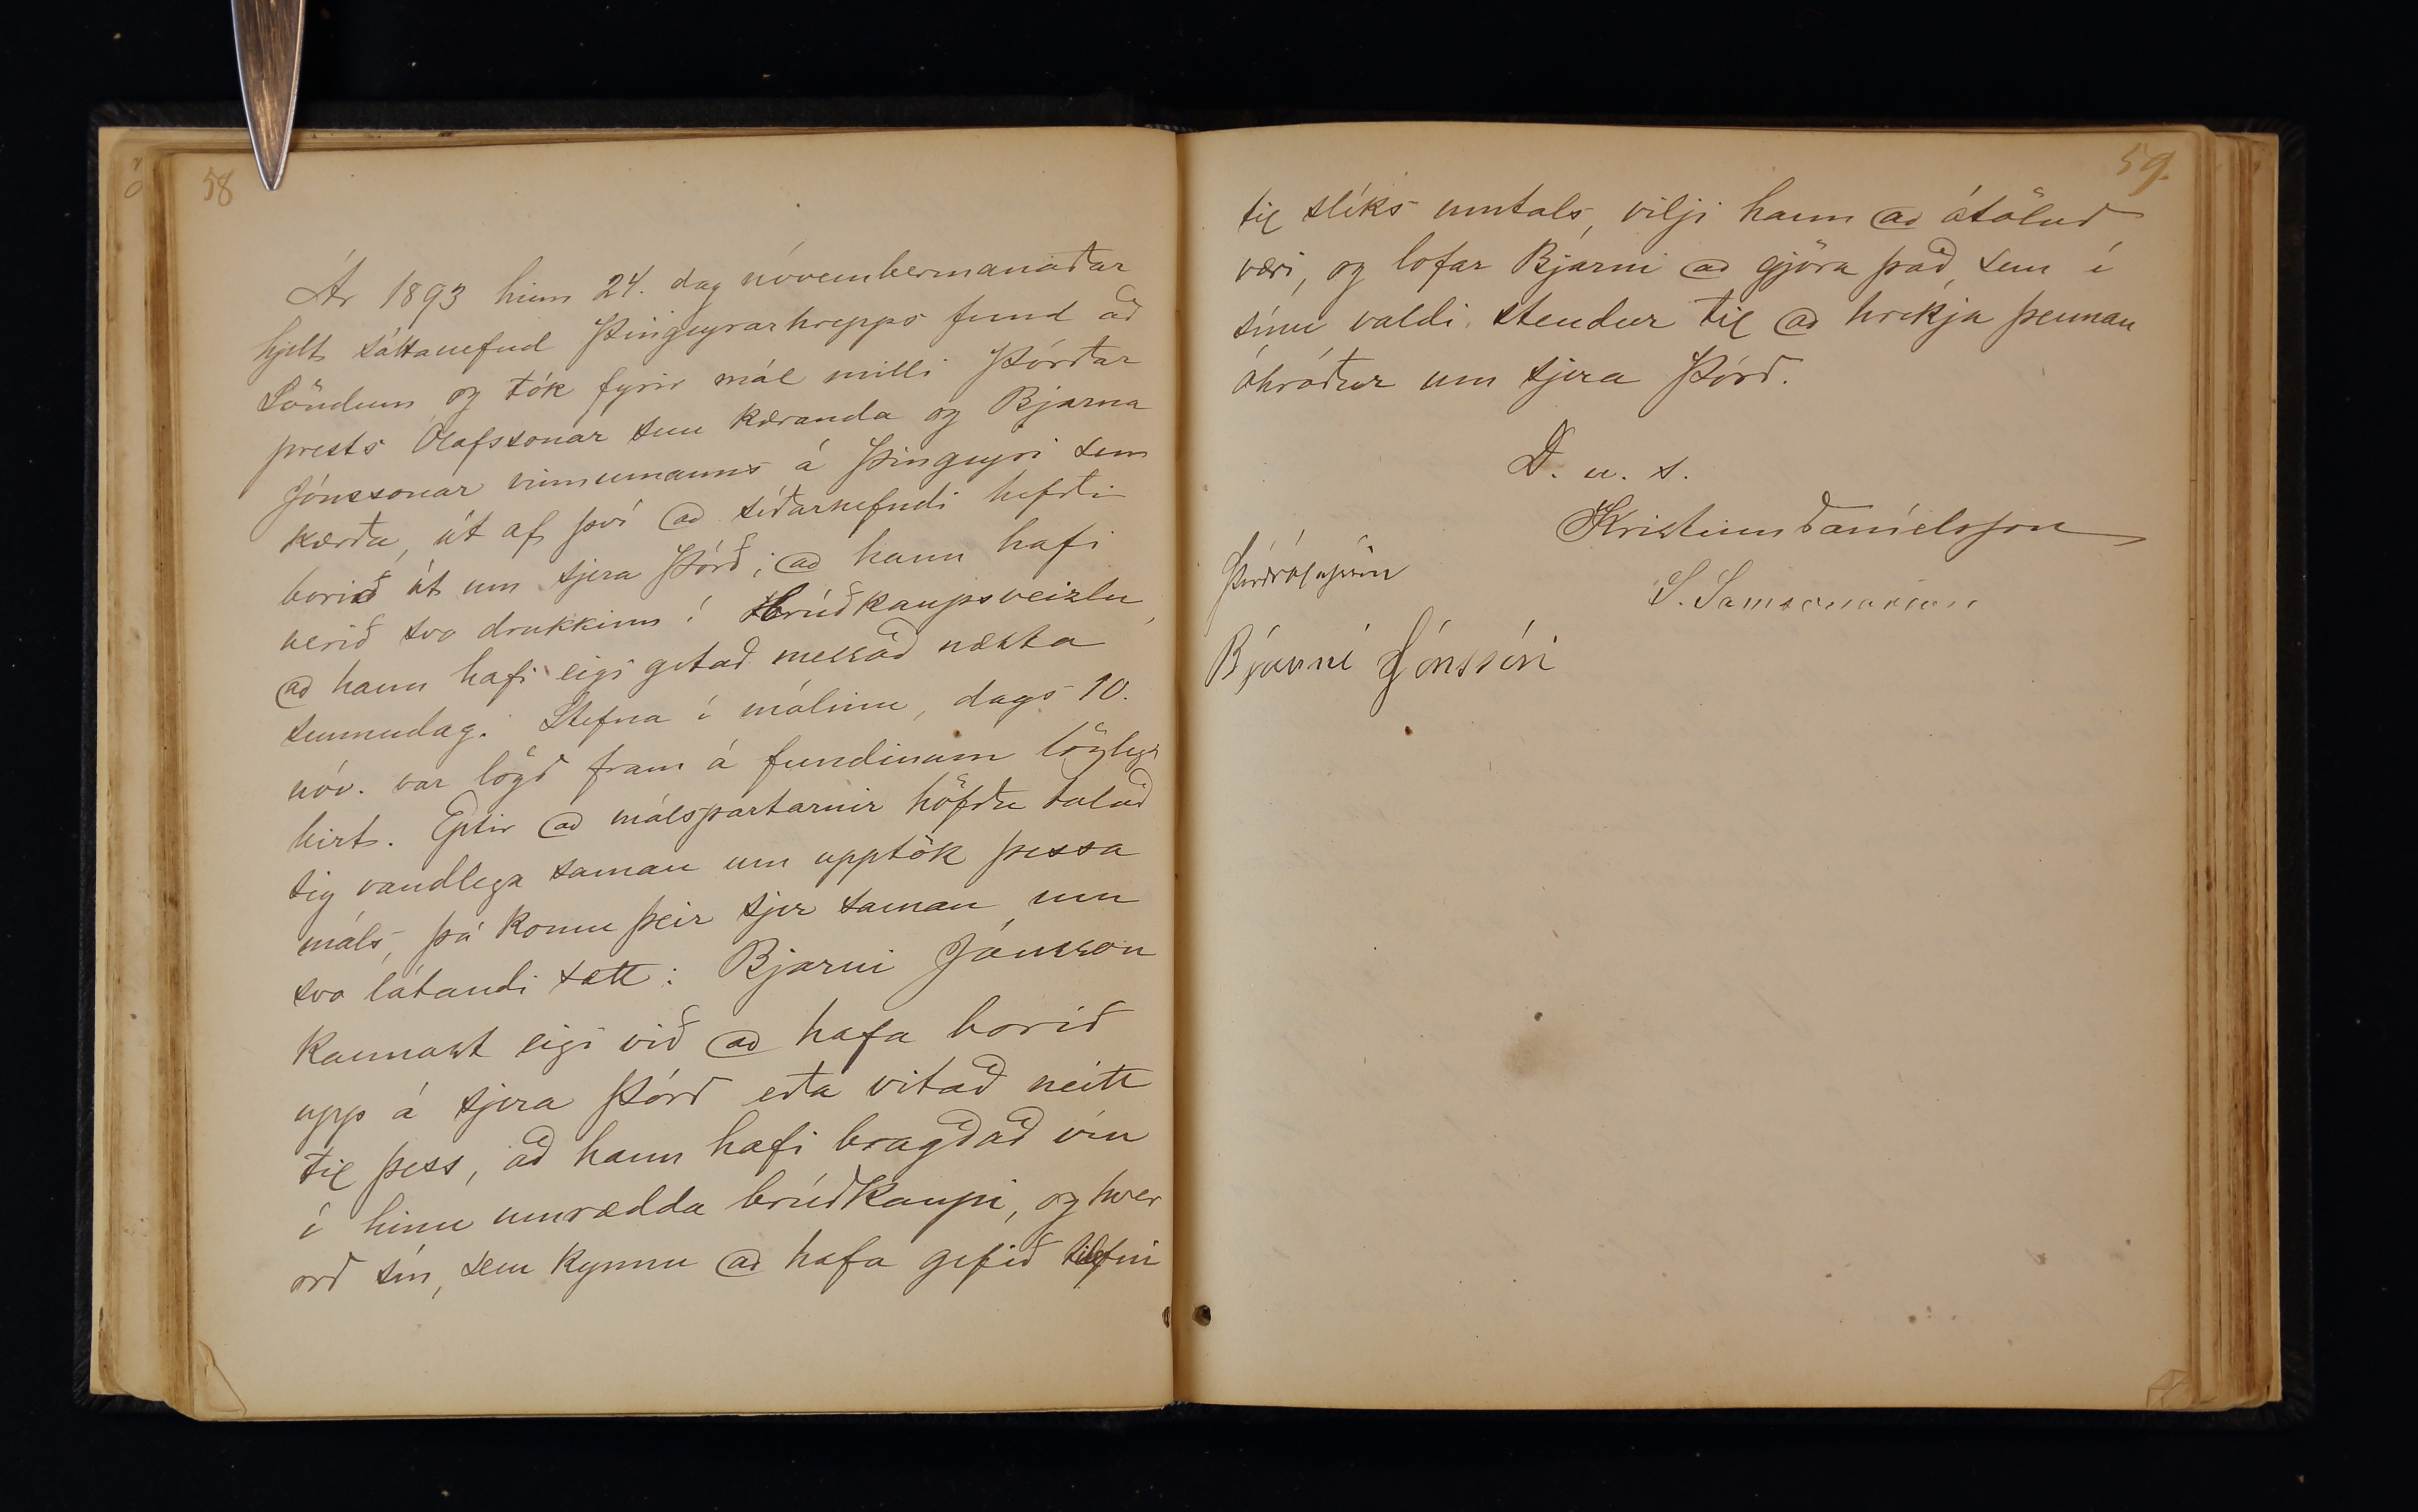 58
Ár 1893 hinn 24. dag nóvembermánaðar
hjelt sáttanefnd Þingeyrarhrepps fund að
Söndum og tók fyrir mál milli Þórðar
prests Ólafssonar sem kæranda og Bjarna
Jónssonar vinnumanns á Þingeyri sem
kærða, út af því að síðarnefndi hefði
borið út um sjera Þórð, að hann hafi
verið svo drukkinn í brúðkaupsveizlu,
að hann hafi eigi getað messað næsta
sunnudag. Stefna í málinu, dags 10.
nóv. var lögð fram á fundinum löglega
birt. Eptir að málspartarnir höfðu talað
sig vandlega saman um upptök þessa
máls, þá komu þeir sjer saman um
svo látandi sætt: Bjarni Jónsson
kannast eigi við að hafa borið
upp á sjera Þórð eða vitað neitt
til þess, að hann hafi bragðað vín
í hinu umrædda brúðkaupi, og hver
orð sín, sem kynnu að hafa gefið tilefni
59.
til slíks umtals, vilji hann að ótöluð
væri, og lofar Bjarni að gjöra það, sem í
sínu valdi stendur til að hrekja þennan
óhróður um sjera Þórð.
D. u. s.
Kristinn Daníelsson
Þórðr Ólafsson
S. Samsonarson
Bjarni Jónsson